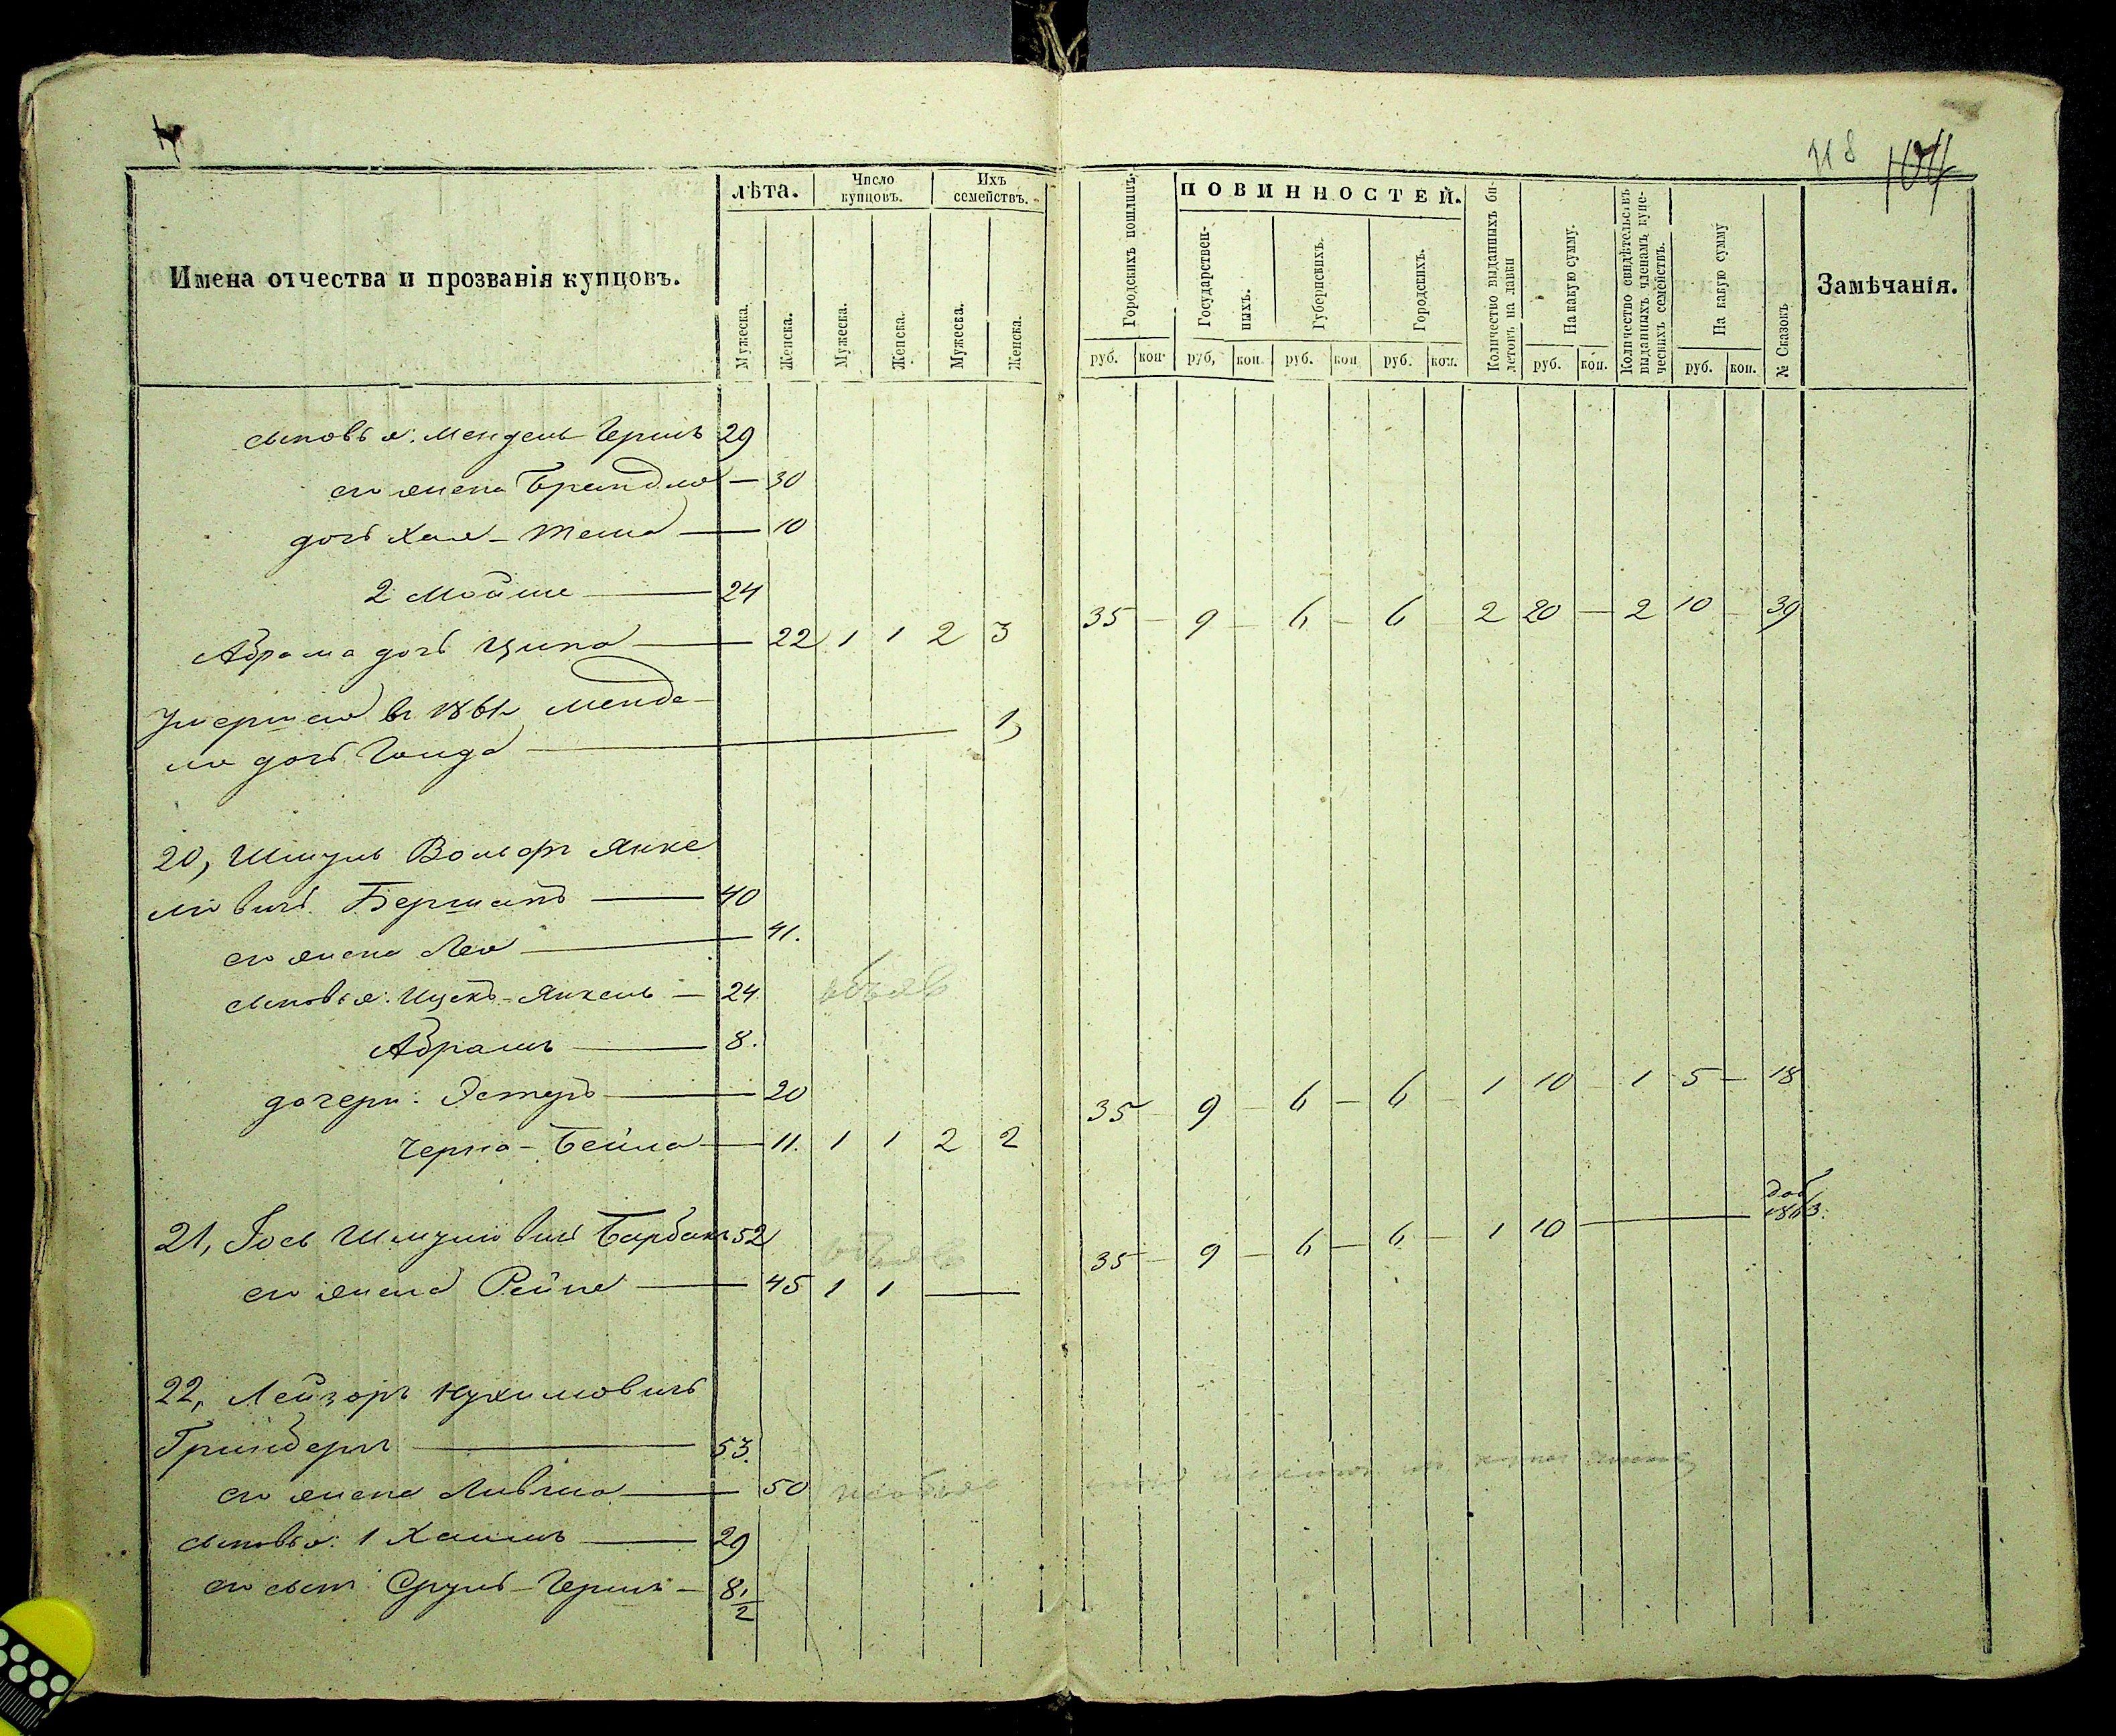 118 104
Имена отчества и прозванія купцовъ.
лѣта.
Мужеска.
Женска.
Число купцовъ.
Мужеска.
Женска.
Ихъ семействъ.
Мужеска.
Женска.
Городскихъ пошлинъ.
руб. коп.
ПОВИННОСТЕЙ.
Государственныхъ.
руб. коп.
Губернскихъ.
руб. коп
Городскихъ.
руб. коп.
Количество выданныхъ билетовъ на лавки
На какую сумму.
руб. коп.
Количество свидѣтельствъ выданныхъ членамъ купеческихъ семействъ.
На какую сумму
руб. коп.
№ Сказокъ
Замѣчанія.
сыновья: Мендель Гершъ 29
его жена Брандля — 30
дочь Хая - Теша — 10
2 Мойше — 24
Абрама дочь Ципа — 22 1 1 2 3 35 — 9 — 6 — 6 2 20 — 2 10 — 39
Умершая въ 1861 Менде-
ля дочь Голда — 1,
20, Шмуль Вольфъ Янке
левичъ Бершадъ — 40
его жена Лея — 41.
сыновья: Ицекъ - Янкель — 24.
Абрамъ — 8.
дочери: Эстеръ — 20
Черна - Бейла — 11. 1 1 2 2 35 — 9 — 6 — 6 — 1 10 — 1 5 — 18
21, Іось Шмулевичъ Барбакъ 52
его жена Рейзя — 45 1 1 — 35 — 9 — 6 — 6 — 1 10 — доб 1863.
22, Лейзоръ Нухимовичъ
Гринбергъ — 53.
его жена Ливша — 50
сыновья: 1 Хаимъ — 29
его сынъ Сруль - Гершъ — 8 1/2